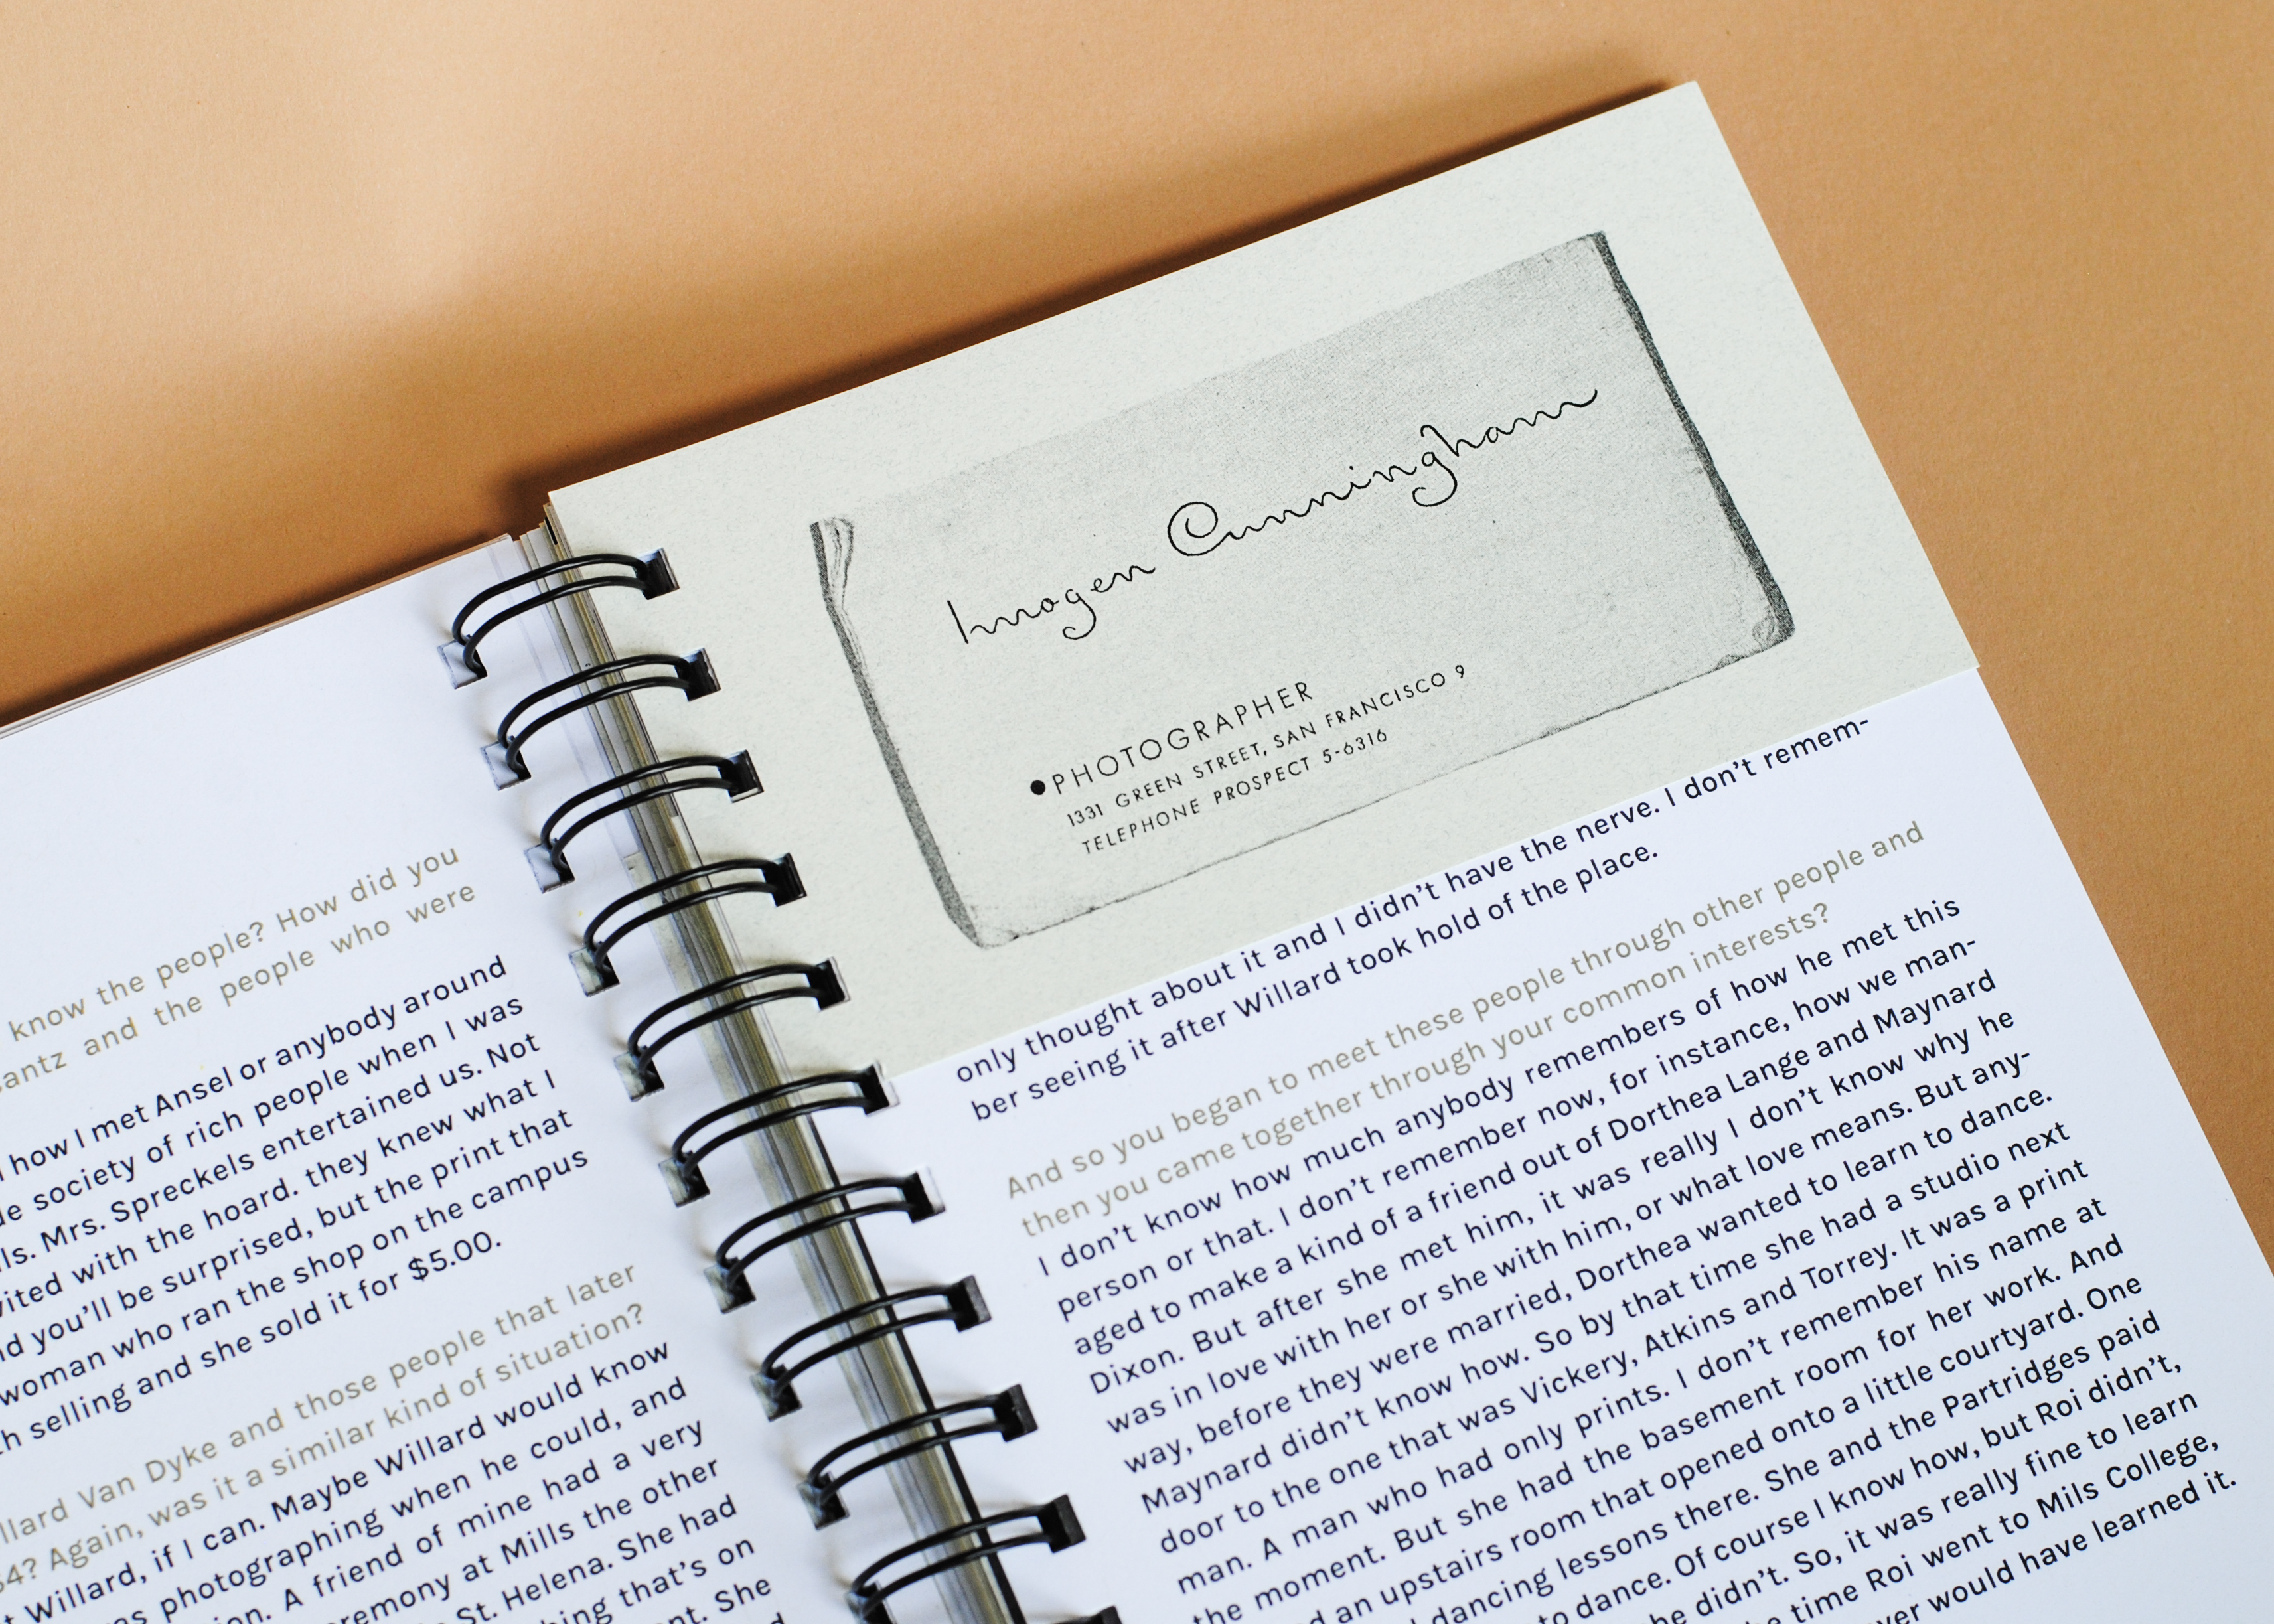 know the people? How did you
and the people who were
how I met Ansel or anybody around
society of rich people when I was
Mrs. Spreckels entertained us. Not
with the hoard. they knew what I
you'll be surprised, but the print that
woman who ran the shop on the campus
selling and she sold it for $5.00.
Van Dyke and those people that later
Again, was it a similar kind of situation?
Willard, if I can. Maybe Willard would know
photographing when he could, and
A friend of mine had a very
at Mills the other
St. Helena. She had
that's on
She
Imogen Cunningham
•PHOTOGRAPHER
1331 GREEN STREET, SAN FRANCISCO 9
TELEPHONE PROSPECT 5-6316
only thought about it and I didn't have the nerve. I don't remem-
ber seeing it after Willard took hold of the place.
And so you began to meet these people through other people and
then you came together through your common interests?
I don't know how much anybody remembers of how he met this
person or that. I don't remember now, for instance, how we man-
aged to make a kind of a friend out of Dorthea Lange and Maynard
Dixon. But after she met him, it was really I don't know why he
was in love with her or she with him, or what love means. But any-
way, before they were married, Dorthea wanted to learn to dance.
Maynard didn't know how. So by that time she had a studio next
door to the one that was Vickery, Atkins and Torrey. It was a print
man. A man who had only prints. I don't remember his name at
the moment. But she had the basement room for her work. And
an upstairs room that opened onto a little courtyard. One
dancing lessons there. She and the Partridges paid
to dance. Of course I know how, but Roi didn't,
he didn't. So, it was really fine to learn
time Roi went to Mils College,
would have learned it.